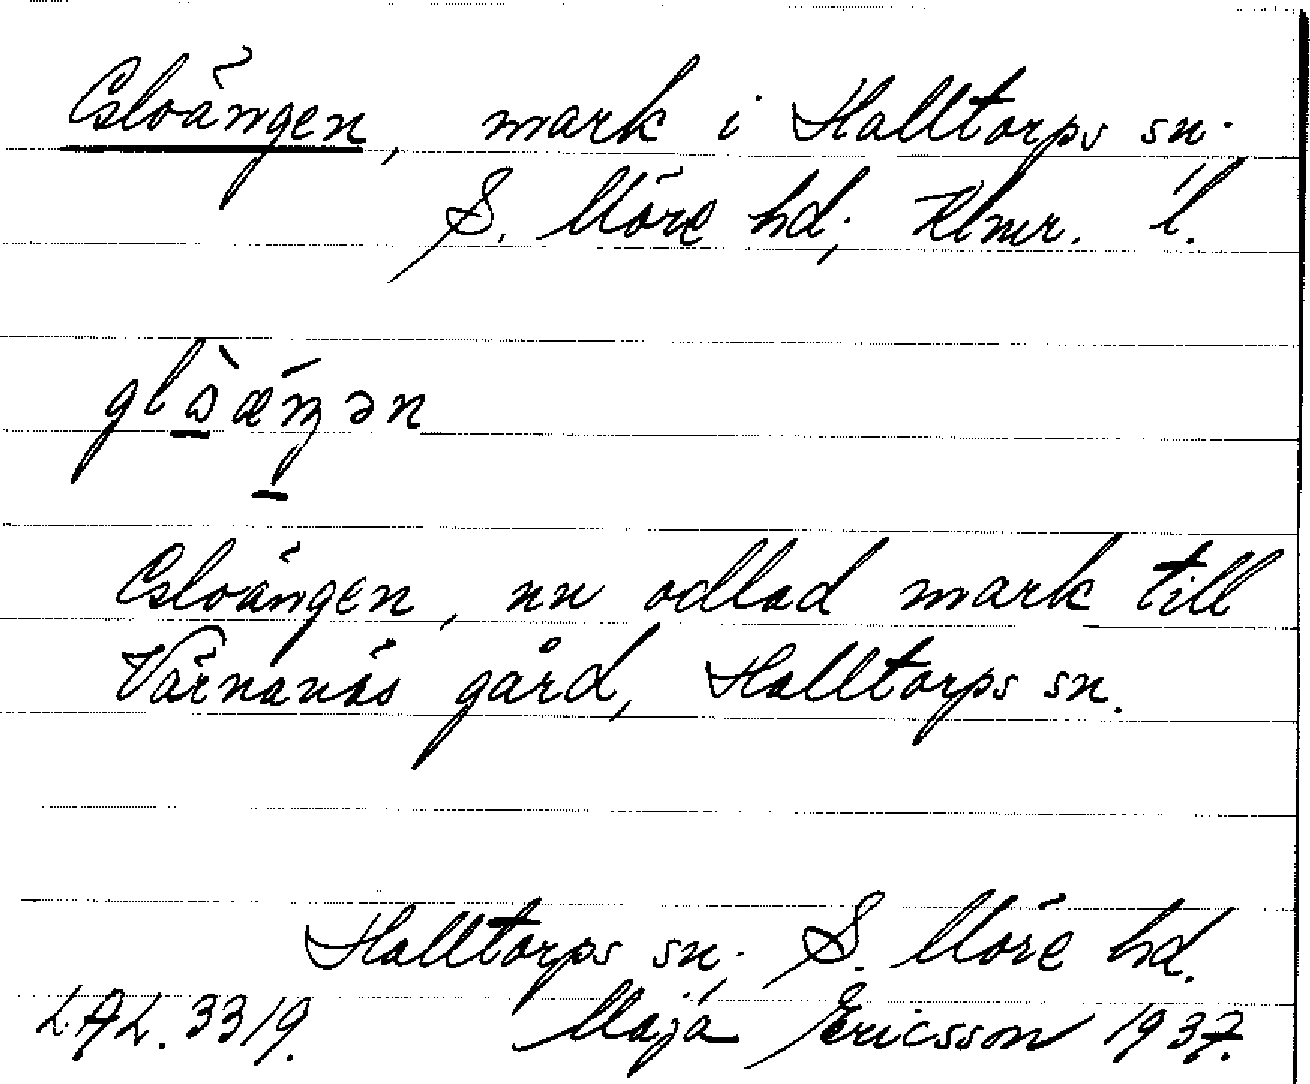 Gloängen, mark i Halltorps sn.,
S. Möre hd; Klmr. l.
glɷ̀ǽŋən
Gloängen, nu odlad mark till
Värnanäs gård, Halltorps sn.
Halltorps sn., S. Möre hd.
LAL. 3319. Maja Ericsson 1937.